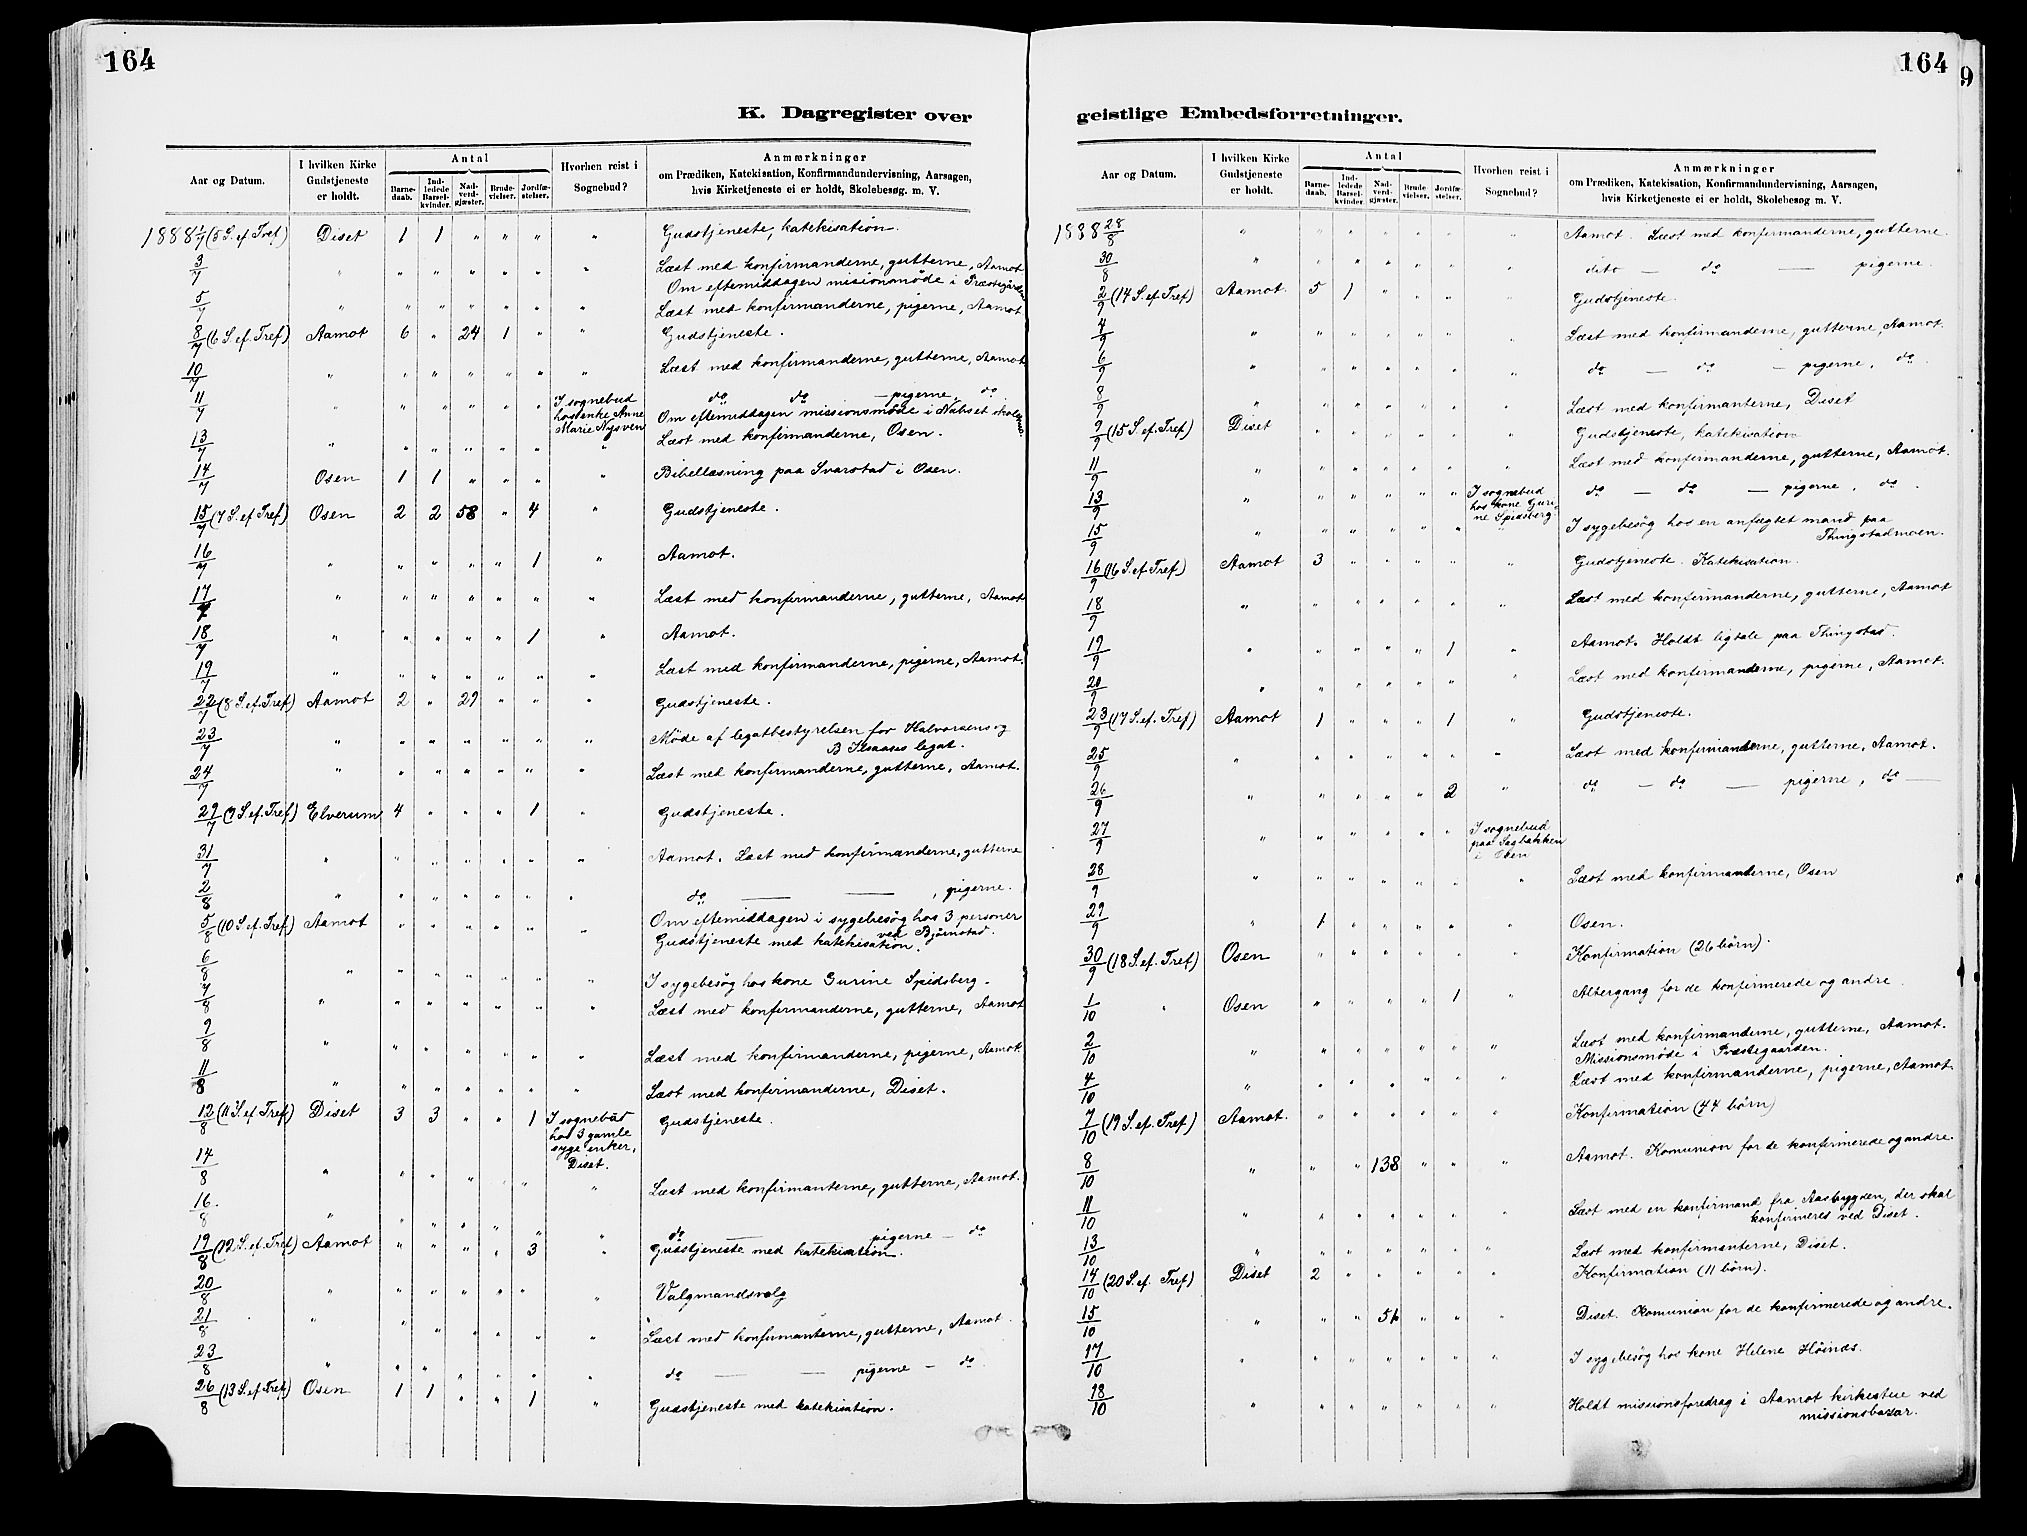 164
K. Dagregister over
Aar og Datum. I hvilken Kirke Gudstjeneste er holdt. Antal Barnedaab. Indledede Barselkvinder. Nadverdgjæster. Brudevielser. Jordfæstelser. Hvorhen reist i Sognebud? Anmærkninger om Prædiken, Katekisation, Konfirmandundervisning, Aarsagen, hvis Kirketjeneste ei er holdt, Skolebesøg. m. V.
1888 1/7 (5 S. ef Tref) Diset 1 1 " " " " Gudstjeneste, katekisation.
3/7 " " " " " " " Læst med konfirmanderne, gutterne, Aamot
Om eftemiddagen misionsmöde i Præstegården
5/7 " " " " " " " Læst med konfirmanderne, pigerne, Aamot
8/7 (6 S. ef. Tref) Aamot 6 " 24 1 " " Gudstjeneste.
10/7 " " " " " " " Læst med konfirmanderne, gutterne, Aamot.
11/7 " " " " " " I sognebud hos enke Anne Marie Nysven do do — pigerne, do
Om eftemiddagen missionsmöde i Nabset skolehus.
13/7 " " " " " " " Læst med konfirmanderne, Osen.
14/7 Osen 1 1 " " " " Bibellæsning paa Svarstad i Osen.
15/7 (7 S. ef Tref) Osen 2 2 58 " 4 " Gudstjeneste.
16/7 " " " " " 1 " Aamot.
17/7 " " " " " " " Læst med konfirmanderne, gutterne, Aamot
18/7 " " " " " 1 " Aamot.
19/7 " " " " " " " Læst med konfirmanderne, pigerne, Aamot.
22/7 (8 S. ef. Tref) Aamot 2 " 29 " " " Gudstjeneste.
23/7 " " " " " " " Möde af legatbestyrelsen for Halvorsens og
B Ilsaases legat.
24/7 " " " " " " " Læst med konfirmanderne, gutterne, Aamot.
29/7 (9 S. ef. Tref) Elverum 4 " " " 1 " Gudstjeneste.
31/7 " " " " " " " Aamot. Læst med konfirmanderne, gutterne
2/8 " " " " " " " do —— —— , pigerne.
5/8 (10 S. ef. Tref) Aamot " " " " " " Om eftemiddagen i sygebesøg hos 3 personer
ved Björnstad.
Gudstjeneste med katekisation.
6/8 " " " " " " " I sygebesøg hos kone Gurine Spidsberg.
7/8 " " " " " " " Læst med konfirmanderne, gutterne, Aamot
9/8 " " " " " " " Læst med konfirmanderne, pigerne, Aamot.
11/8 " " " " " " " Læst med konfirmanderne, Diset.
12/8 (11 S. ef. Tref) Diset 3 3 " " 1 I sognebud hos 3 gamle syge enker, Diset. Gudstjeneste.
14/8 " " " " " " " Læst med konfirmanterne, gutterne, Aamot.
16/8 " " " " " " " do —— pigerne — do
19/8 (12 S. ef. Tref) Aamot " " " " 3 " Gudstjeneste med katekisation.
20/8 " " " " " " " Valgmandsvalg
21/8 " " " " " " " Læst med konfirmanterne, gutterne, Aamot.
23/8 " " " " " " " do —— —— pigerne — do.
26/8 (13 S. ef. Tref) Osen 1 1 " " 1 " Gudstjeneste med katekisation.
164
9
geistlige Embedsforretninger.
Aar og Datum. I hvilken Kirke Gudstjeneste er holdt. Antal Barnedaab. Indledede Barselkvinder. Nadverdgjæster. Brudevielser. Jordfæstelser. Hvorhen reist i Sognebud? Anmærkninger om Prædiken, Katekisation, Konfirmandundervisning, Aarsagen, hvis Kirketjeneste ei er holdt, Skolebesøg m. V.
1888 28/8 " " " " " " " Aamot. Læst med konfirmanderne, gutterne.
30/8 " " " " " " " dito — do —— pigerne.
2/9 (14 S. ef. Tref) Aamot. 5 1 " " " " Gudstjeneste.
4/9 " " " " " " " Læst med konfirmanderne, gutterne, Aamot.
6/9 " " " " " " " do — do — pigerne, do.
8/9 " " " " " " " Læst med konfirmanterne, Diset
9/9 (15 S. ef. Tref) Diset " " " " " " Gudstjeneste, katekisation
11/9 " " " " " " " Læst med konfirmanderne, gutterne, Aamot.
13/9 " " " " " " I sognebud hos kone Gurine Spidsberg. do — do — pigerne, do.
15/9 " " " " " " " I sygebesög hos en anfægtet mand paa
Thingstadmoen.
16/9 (16 S. ef. Tref) Aamot 3 " " " " " Gudstjeneste. Katekisation.
18/9 " " " " " " " Læst med konfirmanderne, gutterne, Aamot
19/9 " " " " " 1 " Aamot. Holdt ligtale paa Thingstad.
20/9 " " " " " " " Læst med konfirmanderne, pigerne, Aamot.
23/9 (17 S. ef. Tref) Aamot 1 " " " 1 " Gudstjeneste.
25/9 " " " " " " " Læst med konfirmanderne, gutterne, Aamot.
26/9 " " " " " 2 " do — do —— pigerne, do ——
27/9 " " " " " " I sognebud paa Sagbakken i Osen
28/9 " " " " " " " Læst med konfirmanderne, Osen
29/9 " 1 " " " " " Osen.
30/9 (18 S. ef. Tref) Osen " " " " " " Konfirmation (26 börn).
1/10 " Osen " " " " 1 " Altergang for de konfirmerede og andre.
2/10 " " " " " " " Læst med konfirmanderne, gutterne, Aamot.
Missionsmöde i Præstegaarden.
4/10 " " " " " " " Læst med konfirmanderne, pigerne, Aamot
7/10 (19 S. ef. Tref) Aamot. " " " " " " Konfirmation (44 börn)
8/10 " " " 138 " " " Aamot. Komunion for de konfirmerede og andre.
11/10 " " " " " " " Læst med en konfirmand fra Aasbygden, der skal
konfirmeres ved Diset.
13/10 " " " " " " " Læst med konfirmanterne, Diset.
14/10 (20 S. ef. Tref) Diset 2 " " " " " Konfirmation (11 börn).
15/10 " " " 51 " " " Diset. Komunion for de konfirmerede og andre.
17/10 " " " " " " " I sygebesög hos kone Helene Höinæs.
18/10 " " " " " " " Holdt missionsforedrag i Aamot kirkestue ved
missionsbazar.